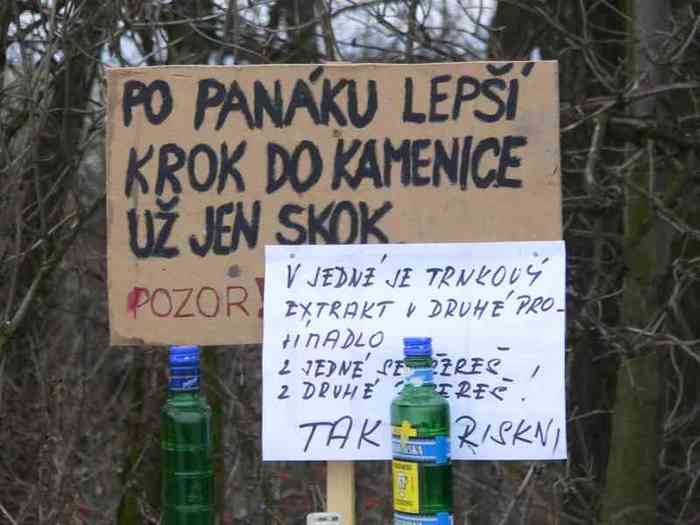 PO PANÁKU LEPŠÍ
KROK DO KAMENICE
UŽ JEN SKOK
POZOR!
V JEDNÉ JE TRNKOVÝ
EXTRAKT V DRUHÉ PRO-
JÍMADLO
Z JEDNÉ SE
Z DRUHÉ !
TAK RISKNI